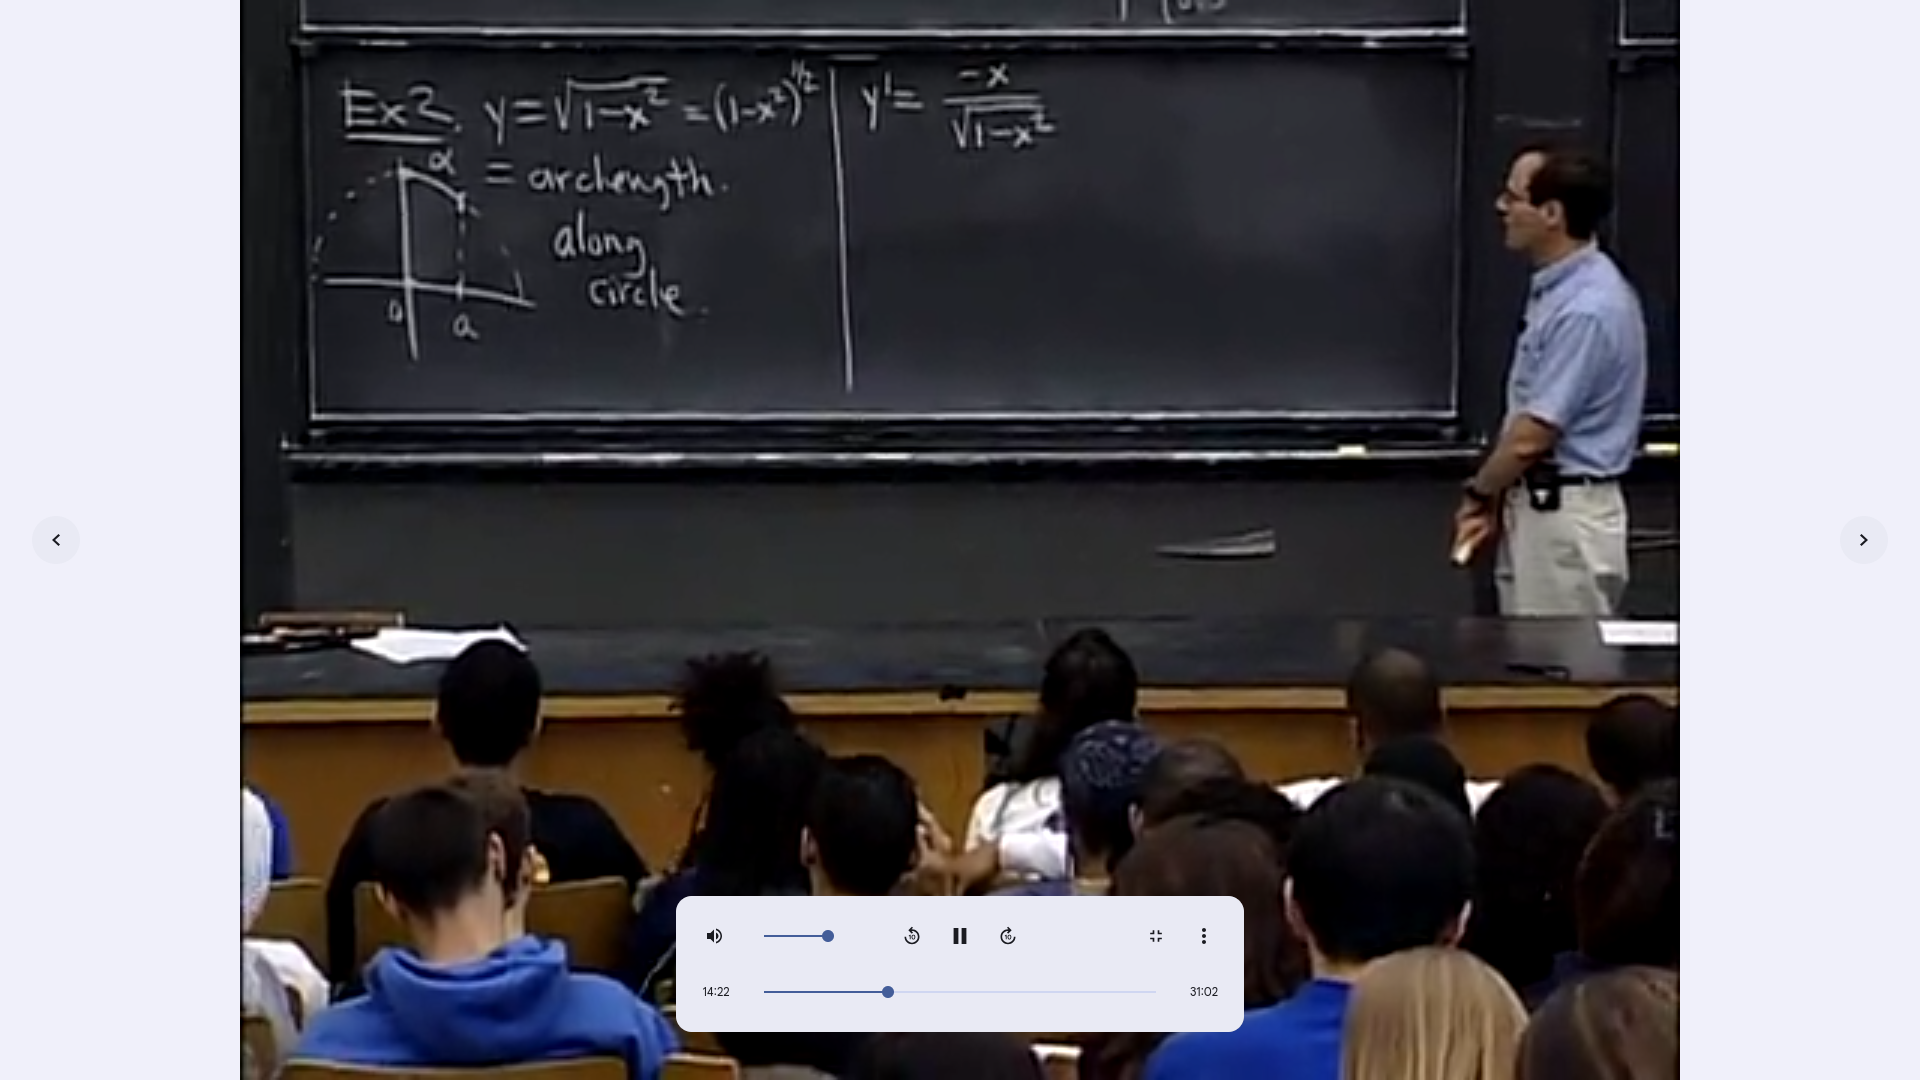 Ex 2. y = √1-x² = (1-x²)^½
α = arclength.
along
circle.
0
a
y' = -x / √1-x²
10
10
14:22
31:02